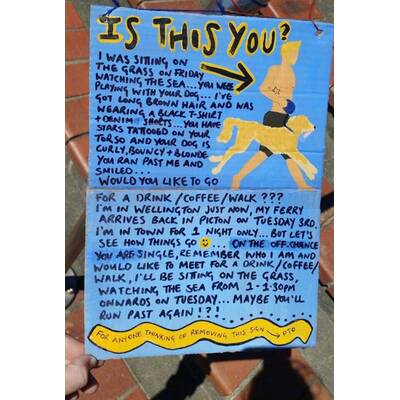 IS THIS YOU?
I WAS SITTING ON
THE GRASS ON FRIDAY
WATCHING THE SEA... YOU WERE
PLAYING WITH YOUR DOG... I'VE
GOT LONG BROWN HAIR AND WAS
WEARING A BLACK T-SHIRT
+ DENIM SHORTS... YOU HAVE
STARS TATTOOED ON YOUR
TORSO AND YOUR DOG IS
CURLY, BOUNCY + BLONDE
YOU RAN PAST ME AND
SMILED...
WOULD YOU LIKE TO GO
FOR A DRINK / COFFEE / WALK ???
I'M IN WELLINGTON JUST NOW, MY FERRY
ARRIVES BACK IN PICTON ON TUESDAY 3RD.
I'M IN TOWN FOR 1 NIGHT ONLY... BUT LET'S
SEE HOW THINGS GO 🙂... ON THE OFF-CHANCE
YOU ARE SINGLE, REMEMBER WHO I AM AND
WOULD LIKE TO MEET FOR A DRINK / COFFEE /
WALK, I'LL BE SITING ON THE GRASS,
WATCHING THE SEA FROM 1-1:30PM
ONWARDS ON TUESDAY... MAYBE YOU'LL
RUN PAST AGAIN!?!
FOR ANYONE THINKING OF REMOVING THIS SIGN → PTO